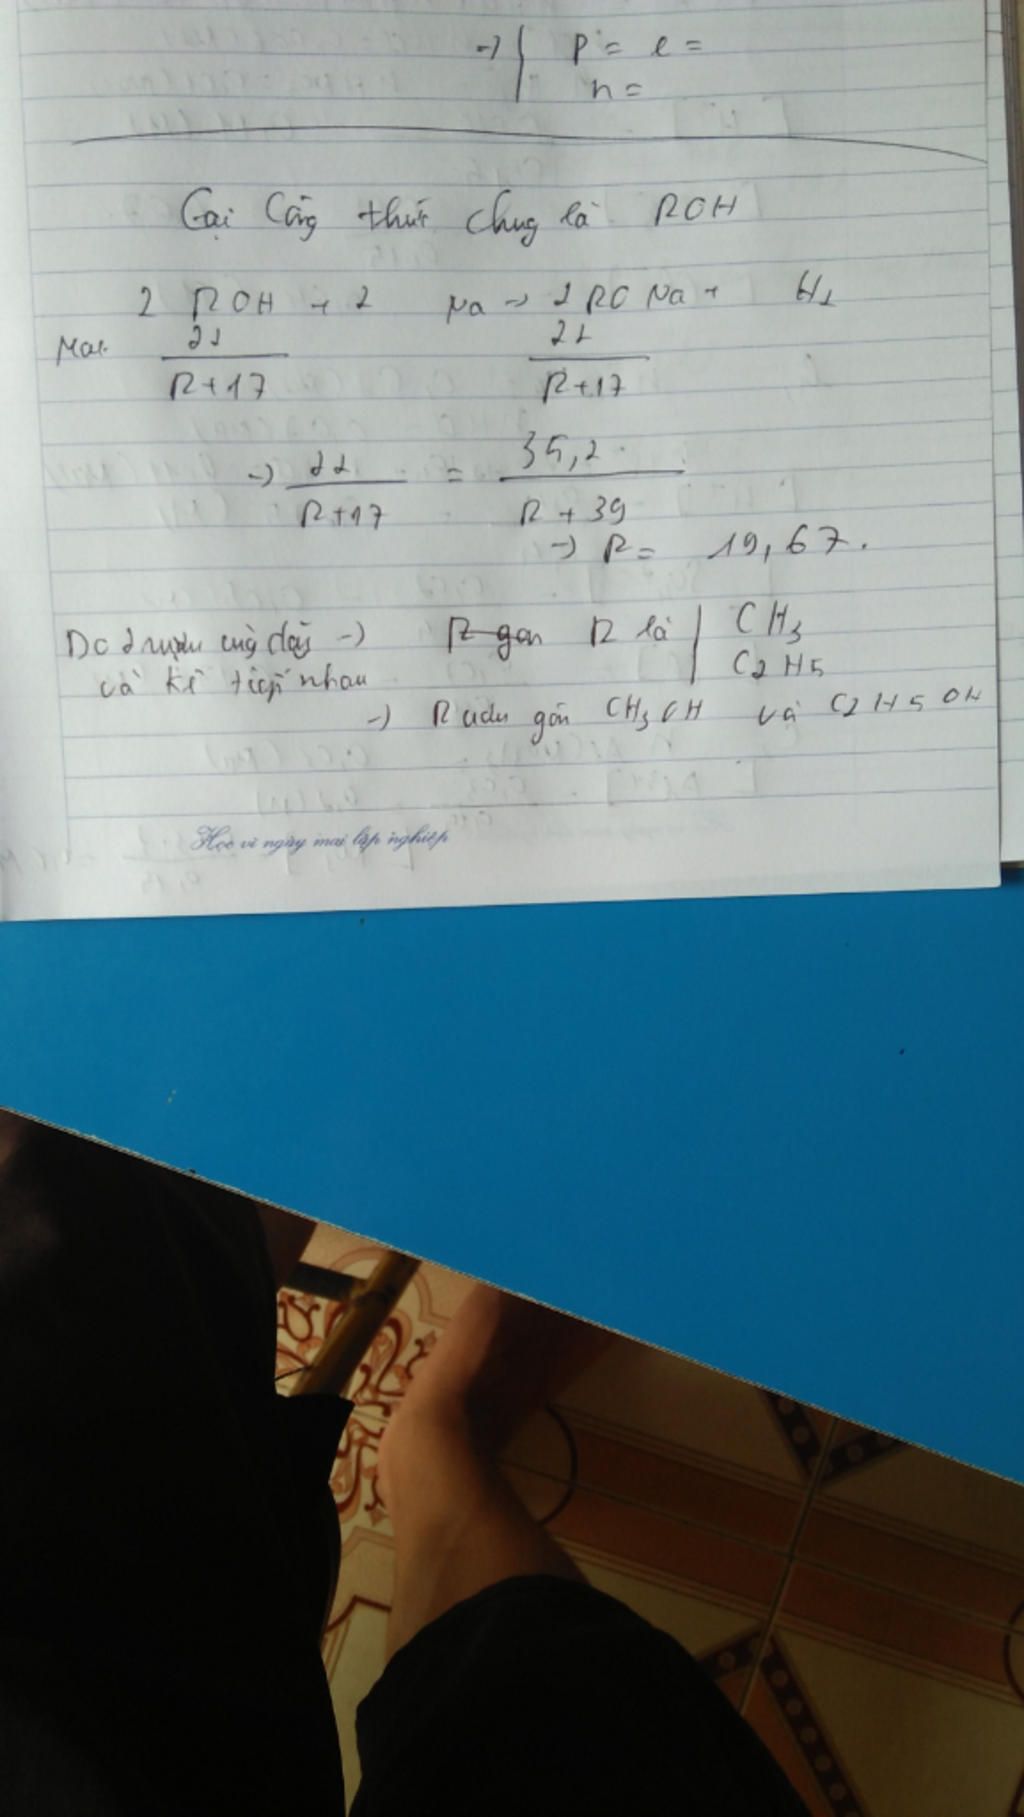 -> | P = e =
n =
Gọi Công thức chug là ROH
2 ROH + 2 Na -> 2 RO Na + H2
Mol. 22/R+17 22/R+17
-> 22/R+17 = 35,2/R+39
-> R = 19,67.
Do 2 rượu cùg dãy -> R gồn R là | CH3
C2H5
và kế tiếp nhau
-> Rượu gồn CH3OH và C2H5OH
Học vì ngày mai lập nghiệp